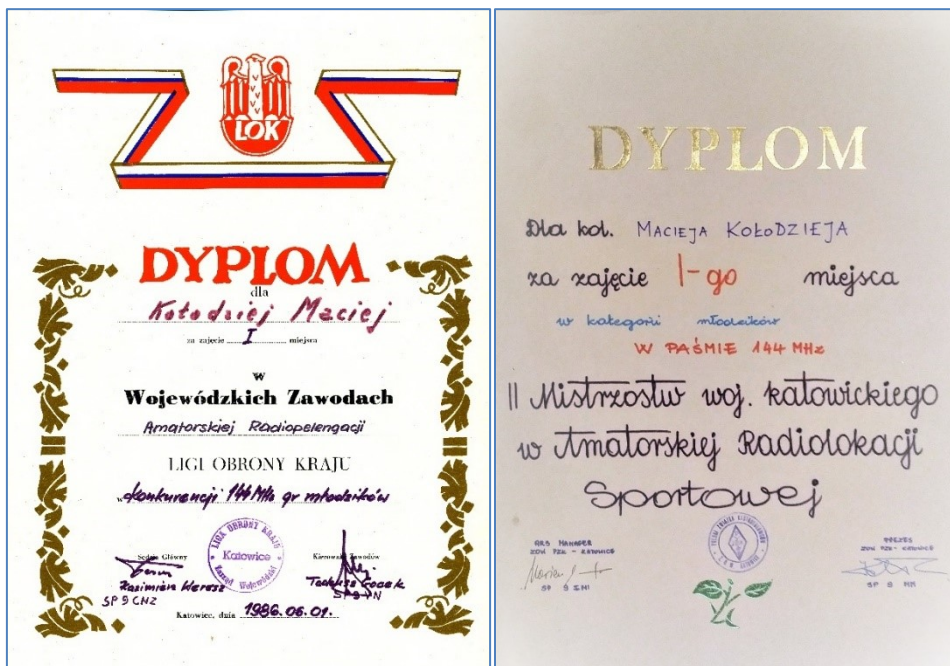 LOK
DYPLOM
dla
Kołodziej Maciej
za zajęcie I miejsca
w
Wojewódzkich Zawodach
Amatorskiej Radiopelengacji
LIGI OBRONY KRAJU
w konkurencji 144 MHz gr młodzików
Sędzia Główny
Kierownik Zawodów
LIGA OBRONY KRAJU
Katowice
Zarząd Wojewódzki
SP9CNZ
Katowice, dnia 1986.06.01.
DYPLOM
Dla kol. MACIEJA KOŁODZIEJA
za zajęcie I-go miejsca
w kategorii młodzików
W PAŚMIE 144 MHz
II Mistrzostw woj. katowickiego
w Amatorskiej Radiolokacji
Sportowej
ARS MANAGER
ZOW PZK - KATOWICE
PREZES
ZOW PZK - KATOWICE